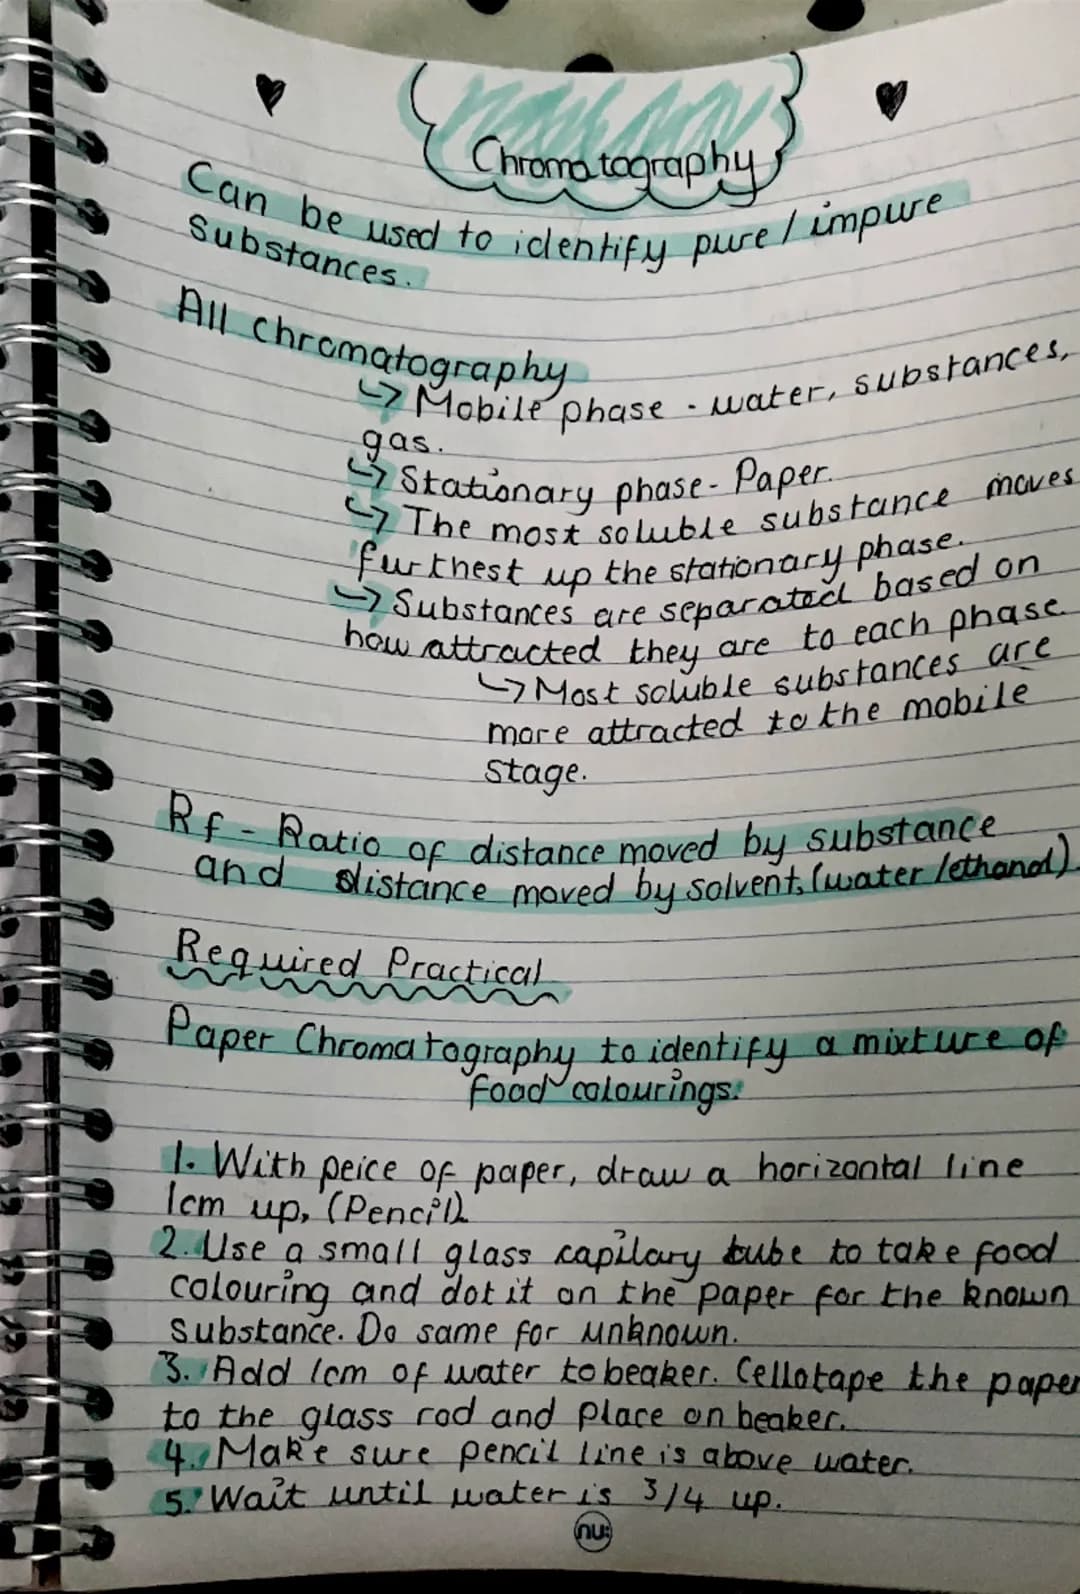 Chromatography
Can be used to identify pure / impure
Substances.
All chromatography
↳ Mobile phase - water, substances,
gas.
↳ Stationary phase - Paper.
↳ The most soluble substance moves
furthest up the stationary phase.
↳ Substances are separated based on
how attracted they are to each phase
↳ Most soluble substances are
more attracted to the mobile
stage.
Rf - Ratio of distance moved by substance
and distance moved by solvent, (water/ethanol).
Required Practical
Paper Chromatography to identify a mixture of
food colourings:
1. With peice of paper, draw a horizontal line
1cm up, (Pencil)
2. Use a small glass capilary tube to take food
colouring and dot it on the paper for the known
substance. Do same for unknown.
3. Add 1cm of water to beaker. Cellotape the paper
to the glass rod and place on beaker.
4. Make sure pencil line is above water.
5. Wait until water is 3/4 up.
nu: